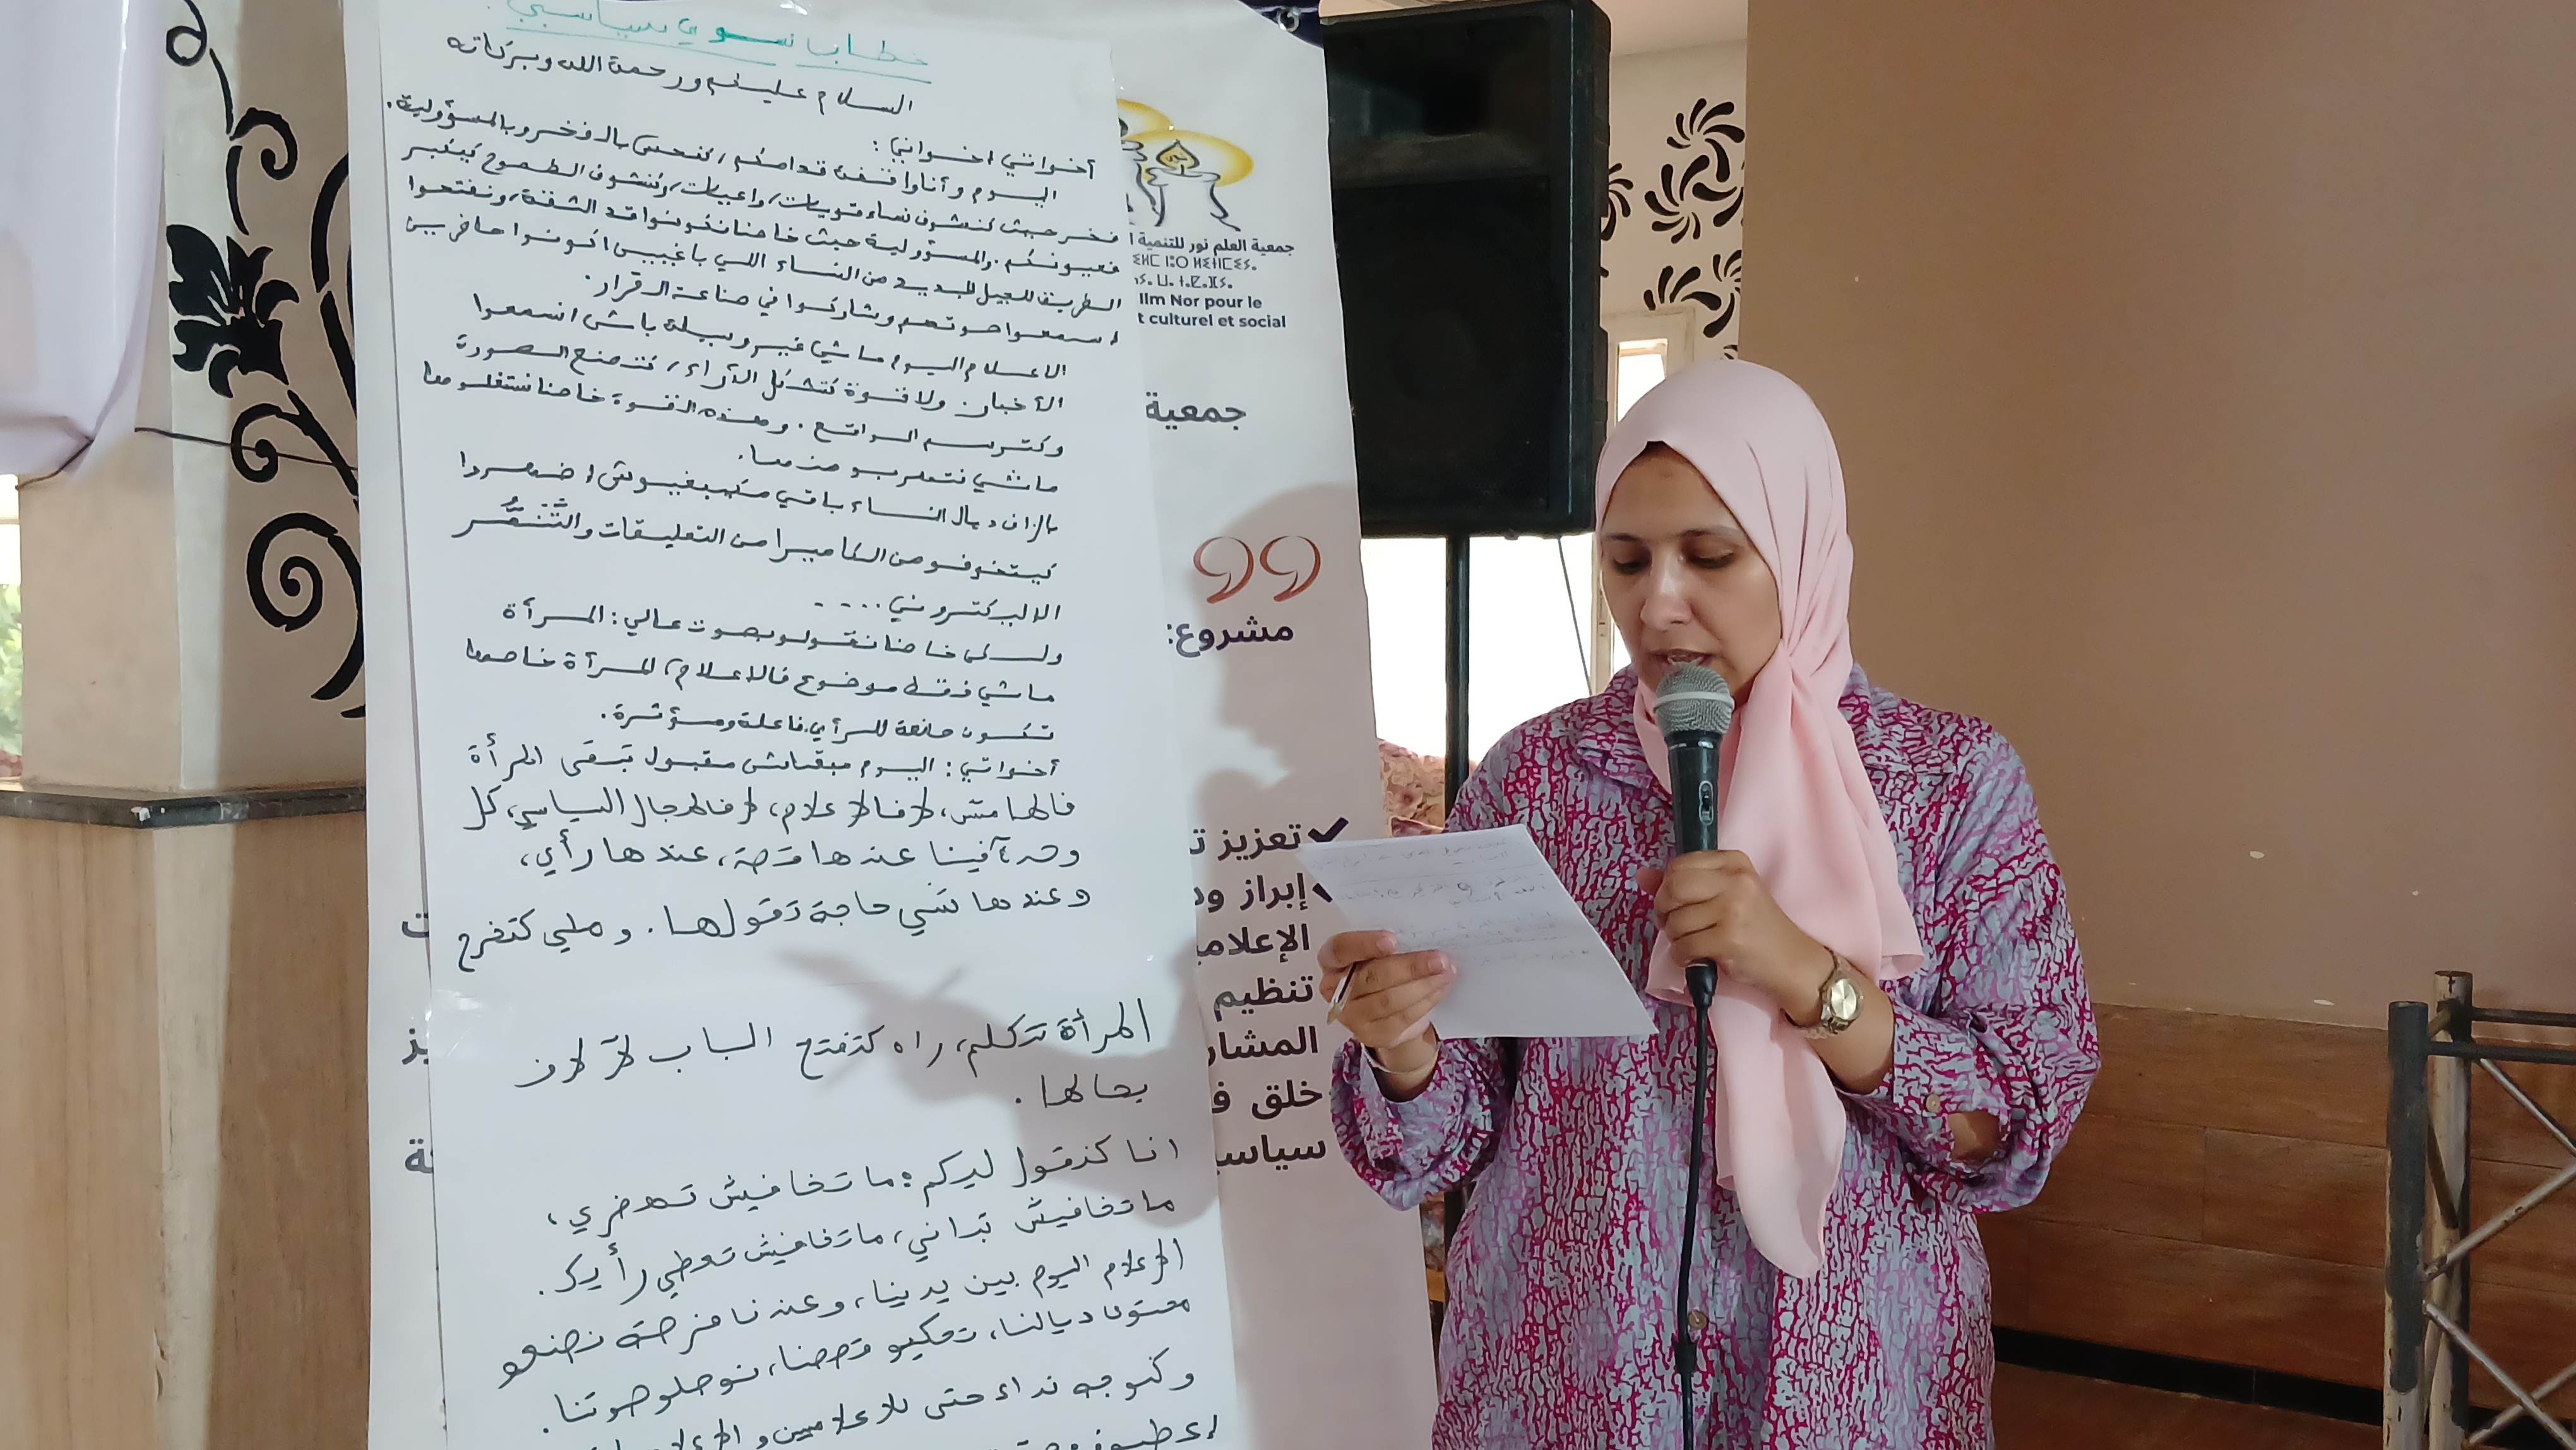 خطاب نسوي سياسي:
السلام عليكم ورحمة الله وبركاته
أخواتي اخواني:
اليوم وأنا واقفة قدامكم، كنحس بالفخر وبالمسؤولية.
فخر حيث كنشوف نساء قويات، واعيات، وكنشوف الطموح كيكبر
فعيونكم. والمسؤولية حيث خاصنا نكونوا قد الثقة، ونفتحوا
الطريق للجيل الجديد من النساء اللي باغيين اكونوا حاضرين
اسمعوا صوتهم وشاركوا في صناعة القرار.
الاعلام اليوم ماشي غير وسيلة باش اسمعوا
الأخبار. ولا قوة كتشكل الآراء، كتصنع الصورة
وكترسم الواقع. وهذه القوة خاصنا نستغلوها
ماشي نتهربو منها.
بالزاف ديال النساء باقي مكيبغيوش اضهروا
كيتخوفو من الكاميرا من التعليقات والتَّنَمُّر
الاليكتروني....
ولكن خاصنا نقولو بصوت عالي: المرأة
ماشي فقط موضوع فالاعلام، المرأة خاصها
تكون صانعة للرأي، فاعلة ومؤثرة.
أخواتي: اليوم مبقاش مقبول تبقى المرأة
فالهامش، لا فالإعلام، لا فالمجال السياسي، كل
وحدة فينا عندها قصة، عندها رأي،
وعندها شي حاجة تقولها. وملي كتخرج
المرأة تتكلم، راه كتفتح الباب لآلاف
بحالها.
انا كنقول ليكم: ما تخافيش تهضري،
ما تخافيش تباني، ما تخافيش تعطي رأيك.
الإعلام اليوم بين يدينا، وعندنا فرصة نصنعو
محتوى ديالنا، نحكيو قصصنا، نوصلو صوتنا.
وكنوجه نداء حتى للإعلاميين و
جمعية العلم نور للتنمية
ⵉⵍⵎ ⵏⵓⵔ
Ilm Nor pour le
t culturel et social
جمعية
مشروع:
تعزيز
إبراز
تنظيم
خلق